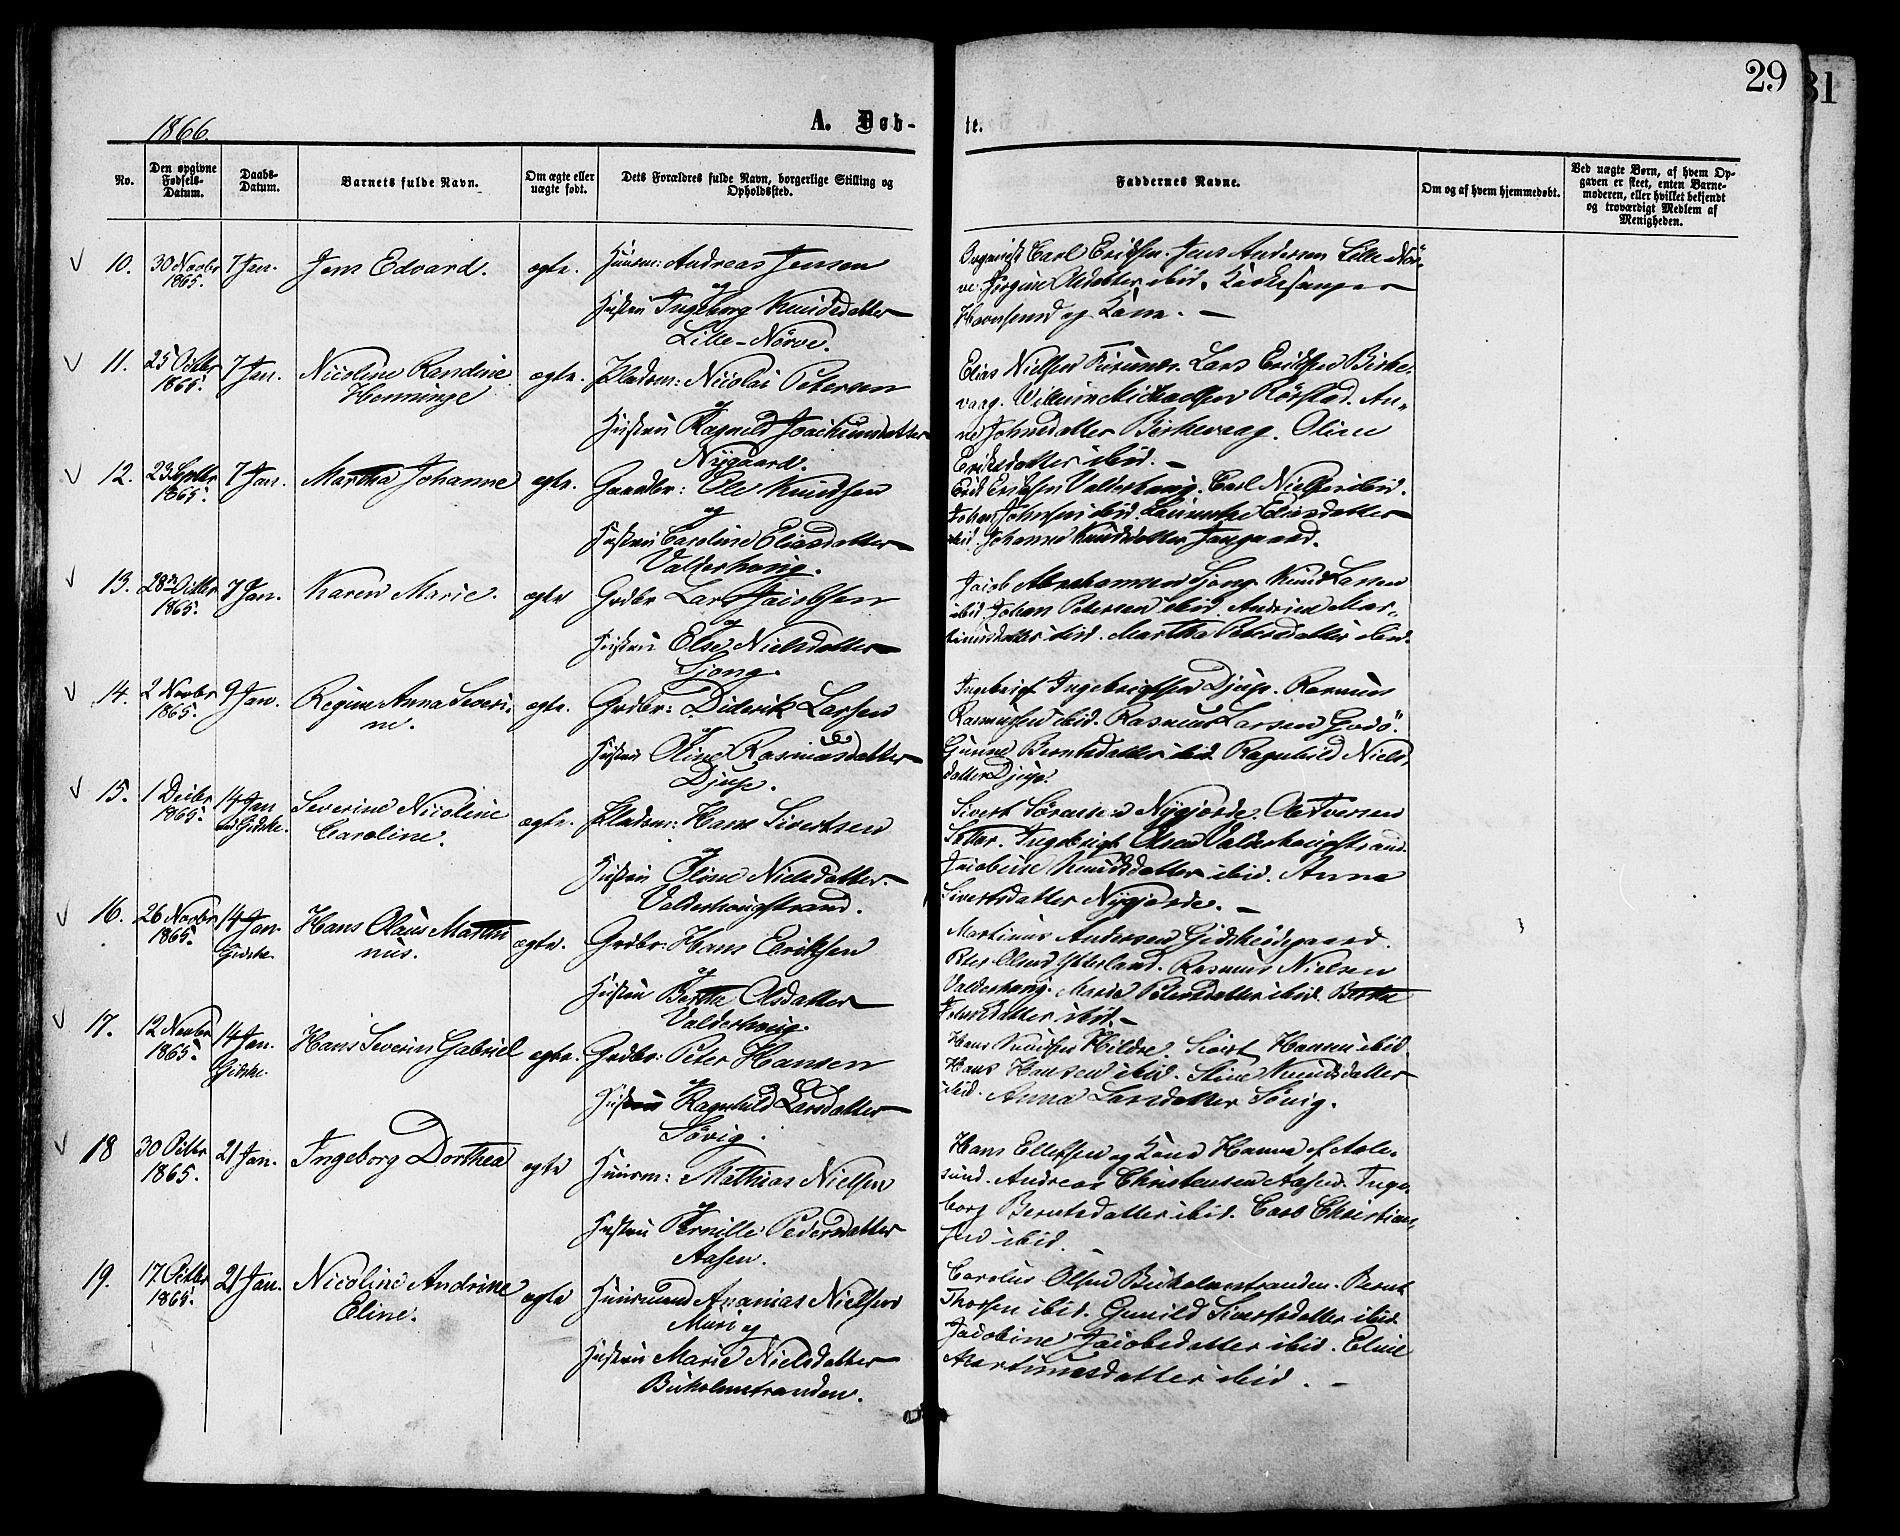 29
31
1866.
A. Døb-
te.
No.
Den opgivne Fødsels-Datum.
Daabs-Datum.
Barnets fulde Navn.
Om ægte eller uægte født.
Dets Forældres fulde Navn, borgerlige Stilling og Opholdssted.
Faddernes Navne.
Om og af hvem hjemmedøbt.
Ved uægte Børn, af hvem Opgaven er skeet, enten Barnemoderen, eller hvilket bekjendt og troværdigt Medlem af Menigheden.
10. 30 Novbr 1865. 7 Jan. Jens Edvard. ægte. Huusm: Andreas Jensen
og
Hustru Ingeborg Knudsdatter
Lille-Nørve.
Organist Carl Eriksen. Jens Andersen Lille-Nør-
ve. Jørgine Olsdatter ibid. Kirkesanger
og Kone.
11. 25 Octbr 1865. 7 Jan. Nicoline Randine
Henninge ægte. Pladsm: Nicolai Petersen
og
Hustru Ragnild Joachimsdatter
Nygaard.
Elias Nielsen. Lars Eriksen Birke-
vaag. Willum Michaelsen Rørstad. An-
ne Johnsdatter Birkevaag. Oline
Eriksdatter ibid.
12. 23 Septbr 1865. 7 Jan. Martha Johanne ægte. Gaardbr: Ole Knudsen
og
Hustru Caroline Eliasdatter
Valderhoug.
Erik Eriksen Valderhoug. Carl Nielsen ibid.
Johan Johnsen ibid. Laurentze Eliasdatter
ibid. Johanne Knudsdatter
13. 28de Octbr 1865. 7 Jan. Karen Marie. ægte Grdbr Lars Jacobsen
og
Hustru Else Nielsdatter
Sjong.
Jacob Abrahamsen Sjong. Knud Larsen
ibid. Johan Petersen ibid. Andrine Mar-
tinusdatter ibid. Martha Petersdatter ibid.
14. 2 Novbr 1865. 9 Jan. Regine Anna Severi-
ne. ægte. Grdbr: Diderik Larsen
og
Hustru Oline Rasmusdatter
Djup.
Ingebrigt Ingebrigtsen Djup. Rasmus
Rasmussen ibid. Rasmus Larsen Godø.
Gurine Berntsdatter ibid. Ragnhild Niels-
datter Djup.
15. 1 Decbr 1865. 14 Jan ved Gidske. Severine Nicoline
Caroline. ægte. Pladsm: Hans Sivertsen
og
Hustru Oline Nielsdatter.
Valderhougstrand.
Sivert Sørensen Nygjerde. Ole Iversen
Sætter. Ingebrigt Olsen Valderhougstrand.
Jacobine Knudsdatter ibid. Anna
Sivertsdatter Nygjerde.
16. 26 Novbr 1865. 14 Jan. Gidske. Hans Olaus Marthi-
nus. ægte. Grdbr: Hans Eriksen
og
Hustru Bertha Olsdatter
Valderhoug.
Martinus Andersen Gidskeødegaard.
Peter Olsen Ytterland. Rasmus Nielsen
Valderhoug. Marie Petersdatter ibid. Berthe
Johnsdatter ibid.
17. 12 Novbr 1865. 14 Jan. Gidske. Hans Severin Gabriel ægte. Grdbr: Peter Hansen
og
Hustru Ragnhild Larsdatter
Søvig.
Hans Knudsen Hildre. Sivert Hansen ibid.
Hans Hansen ibid. Stine Knudsdatter
ibid. Anna Larsdatter Søvig.
18 30 Octbr 1865. 21 Jan. Ingeborg Dorthea ægte Huusm: Mathias Nielsen
og
Hustru Pernille Pedersdatter
Aasen.
Hans Ellefsen og Kone Hanna af Aale-
sund. Andreas Christensen Aasen. Inge-
borg Berntsdatter ibid. Christian-
sen ibid.
19. 17 Octbr 1865. 21 Jan. Nicoline Andrine
Eline. ægte Huusmand Ananias Nielsen
Muri og
Hustru Marie Nielsdatter
Buholmstranden.
Carolus Olsen Buholmstranden. Bernt
Thorsen ibid. Gunild Sivertsdatter ibid.
Jacobine Jacobsdatter ibid. Eline
Martinusdatter ibid.